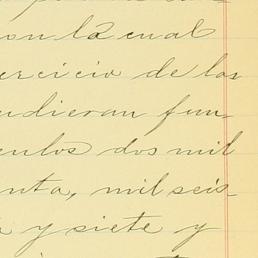 con la cual
ercicio de los
udieran fun
culos dos mil
enta, mil seis
a y siete y